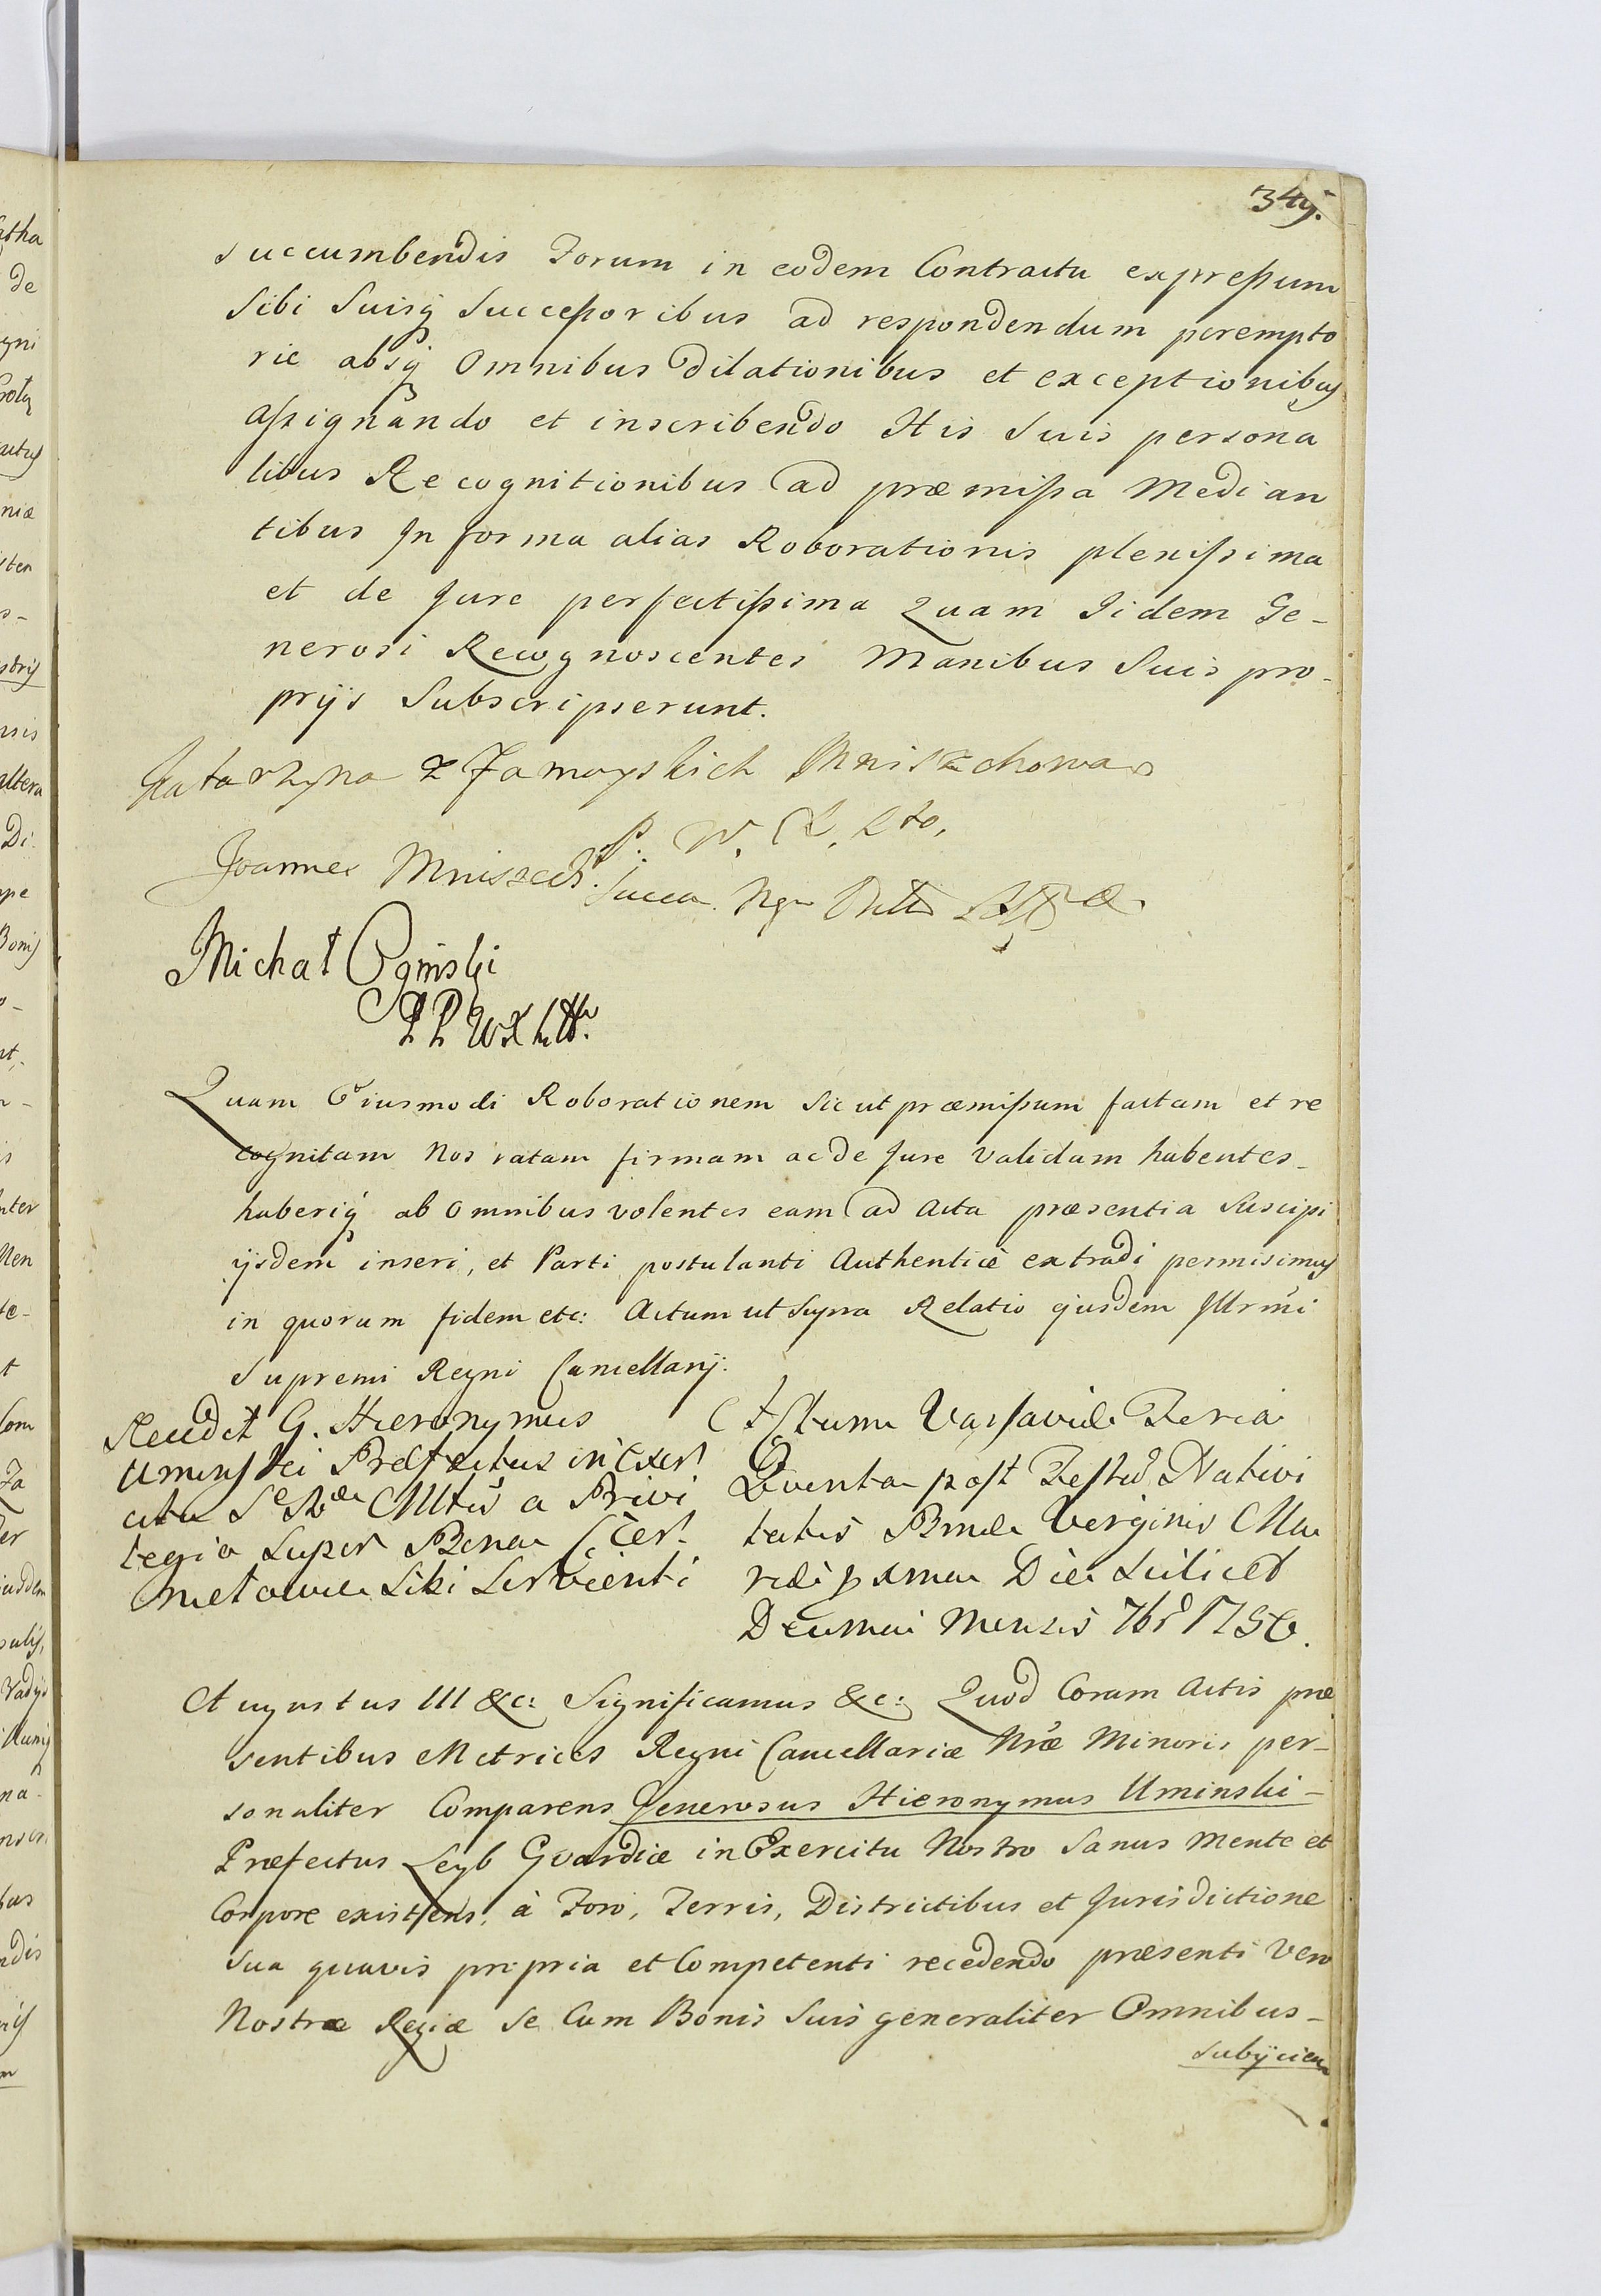 349.
succumbendis Forum in eodem Contractu expreſsum
Sibi Suisq́ Succeſsoribus ad respondendum perempto
rie absq́ Omnibus Dilationibus et exceptionibus
aſsignando et inscribendo His Suis persona
libus Recognitionibus ad præmiſsa Median
tibus In forma alias Roborationis pleniſsima
et de Jure perfectiſsima Quam Iidem Ge-
nerosi Recognoscentes Manibus Suis pro-
prijs Subscripserunt.
Katarzyna z Zamoyskich Mniszchowa
P. W. X. Lto.
Joannes Mniszech.
Michał Ogiński
Quam Eiusmodi Roborationem Sic ut præmiſsum factam et re
cognitam Nos ratam firmam ac de Jure validam habentes_
haberiq́ ab Omnibus volentes eam ad Acta præsentia Suscipi
ijsdem inseri, et Parti postulanti Authenticè extradi permisimus
in quorum fidem etc: Actum ut Supra Relatio ejusdem Illrm̃i
Supremi Regni Cancellarij.
G. Hieronymus
Uminſki Præfectus in Exer
citu Mttis a Privi
legio Super Bona
Sibi Servienti
Actum Varſaviæ Feria
Quinta poſt Feſtum Nativi
tatis Bmæ Virginis Ma
riæ proxima Die Scilicet
Decima Mensis 7br 1756.
Augustus III &c: Significamus &c: Quod Coram Actis præ
sentibus Metrices Regni Cancellariæ Nr̃æ Minoris per-
sonaliter Comparens Generosus Hieronymus Uminski-
Præfectus Leyb Gvardiæ in Exercitu Nostro Sanus Mente et
Corpore existens, à Foro, Terris, Districtibus et Jurisdictione
Sua quavis propria et Competenti recedendo præsenti Vero
Nostræ Regiæ Se Cum Bonis Suis generaliter Omnibus_
Subijcien